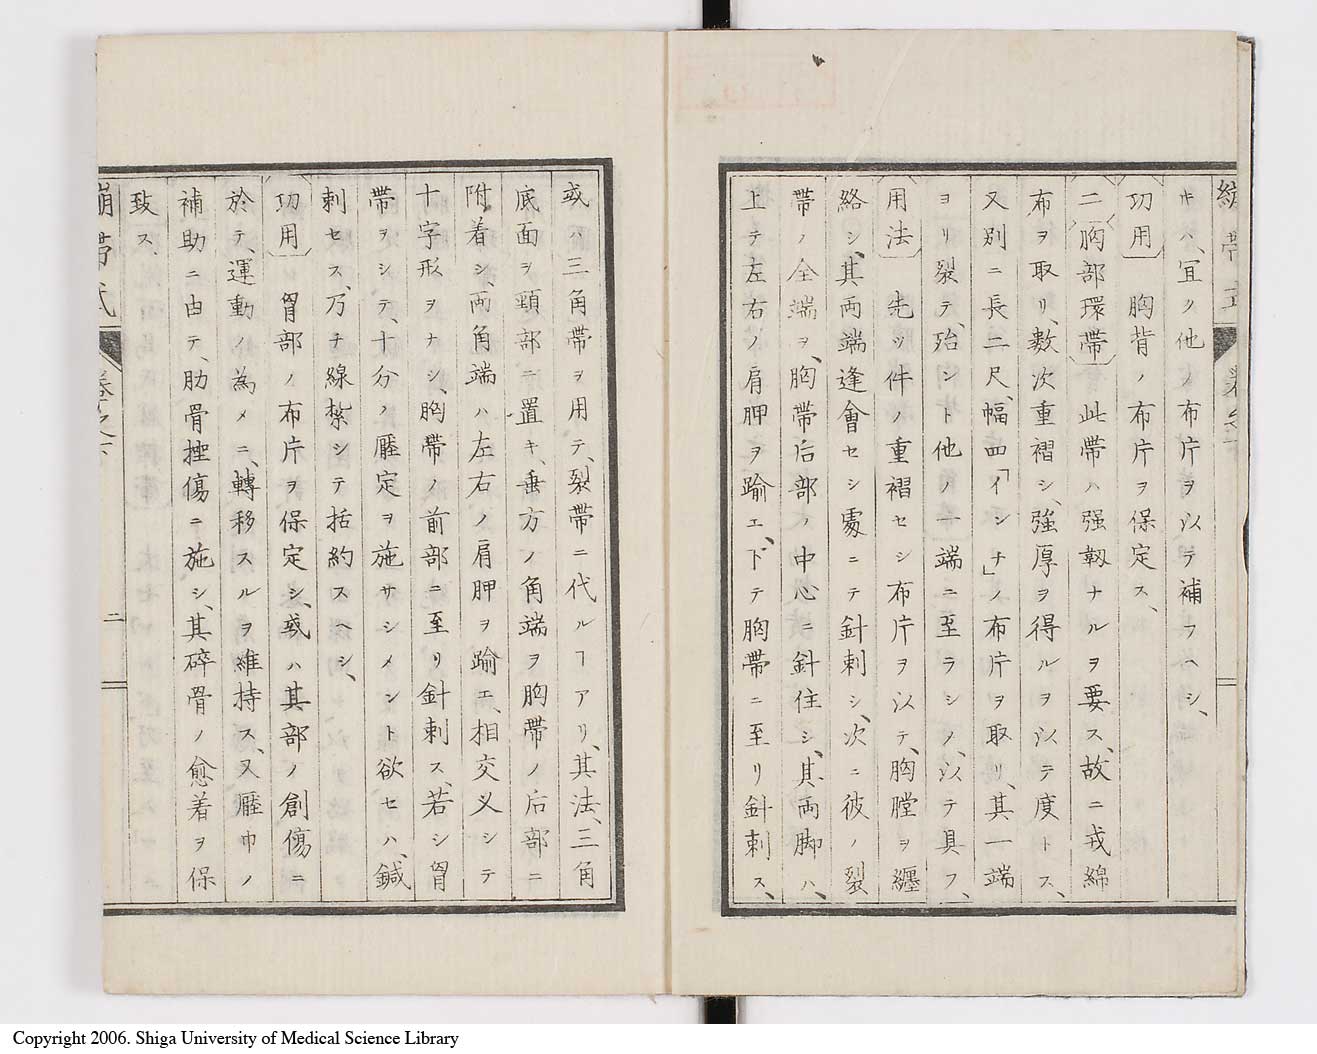 キハ、宜ク他ノ布片ヲ以テ補フヘシ、
功用 胸背ノ布片ヲ保定ス、
二 胸部環帶 此帶ハ强靱ナルヲ要ス、故ニ戎綿
布ヲ取リ、數次重褶シ、强厚ヲ得ルヲ以テ度トス、
又別ニ長二尺、幅四「インチ」ノ布片ヲ取リ、其一端
ヨリ裂テ、殆ント他ノ一端ニ至ラシメ、以テ具フ、
用法 先ツ件ノ重褶セシ布片ヲ以テ、胸膛ヲ纒
絡シ、其両端逢會セシ處ニテ針刺シ、次ニ彼ノ裂
帶ノ全端ヲ、胸帶后部ノ中心ニ針住シ、其両脚ハ、
上テ左右ノ肩胛ヲ踰エ、下テ胸帶ニ至リ針刺ス、
或ハ三角帶ヲ用テ、裂帶ニ代ルヿアリ、其法、三角
底面ヲ頸部ニ置キ、垂方ノ角端ヲ胸帶ノ后部ニ
附着シ、両角端ハ左右ノ肩胛ヲ踰エ、相交叉シテ
十字形ヲナシ、胸帶ノ前部ニ至リ針刺ス、若シ胷
帶ヲシテ、十分ノ壓定ヲ施サシメント欲セハ、鍼
刺セス、乃チ線紮シテ括約スヘシ、
功用 胷部ノ布片ヲ保定シ、或ハ其部ノ創傷ニ
於テ、運動ノ為メニ、轉移スルヲ維持ス、又壓巾ノ
補助ニ由テ、肋骨挫傷ニ施シ、其碎骨ノ愈着ヲ保
致ス、
卷之下
二